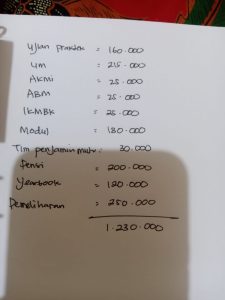 Ujian praktek = 160.000
UM = 215.000
AKMI = 25.000
ABM = 25.000
IKMBK = 25.000
Modul = 180.000
Tim penjamin mutu : 30.000
Pensi = 200.000
Yearbook = 120.000
Pemeliharan = 250.000
1.230.000